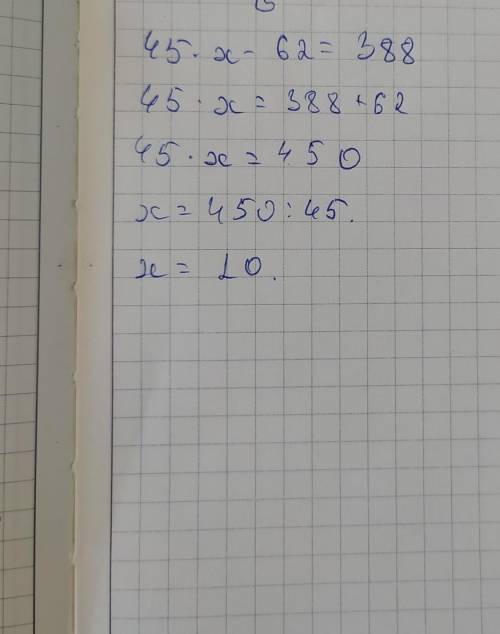 45 · x - 62 = 388
45 · x = 388 + 62
45 · x = 450
x = 450 : 45.
x = 10.